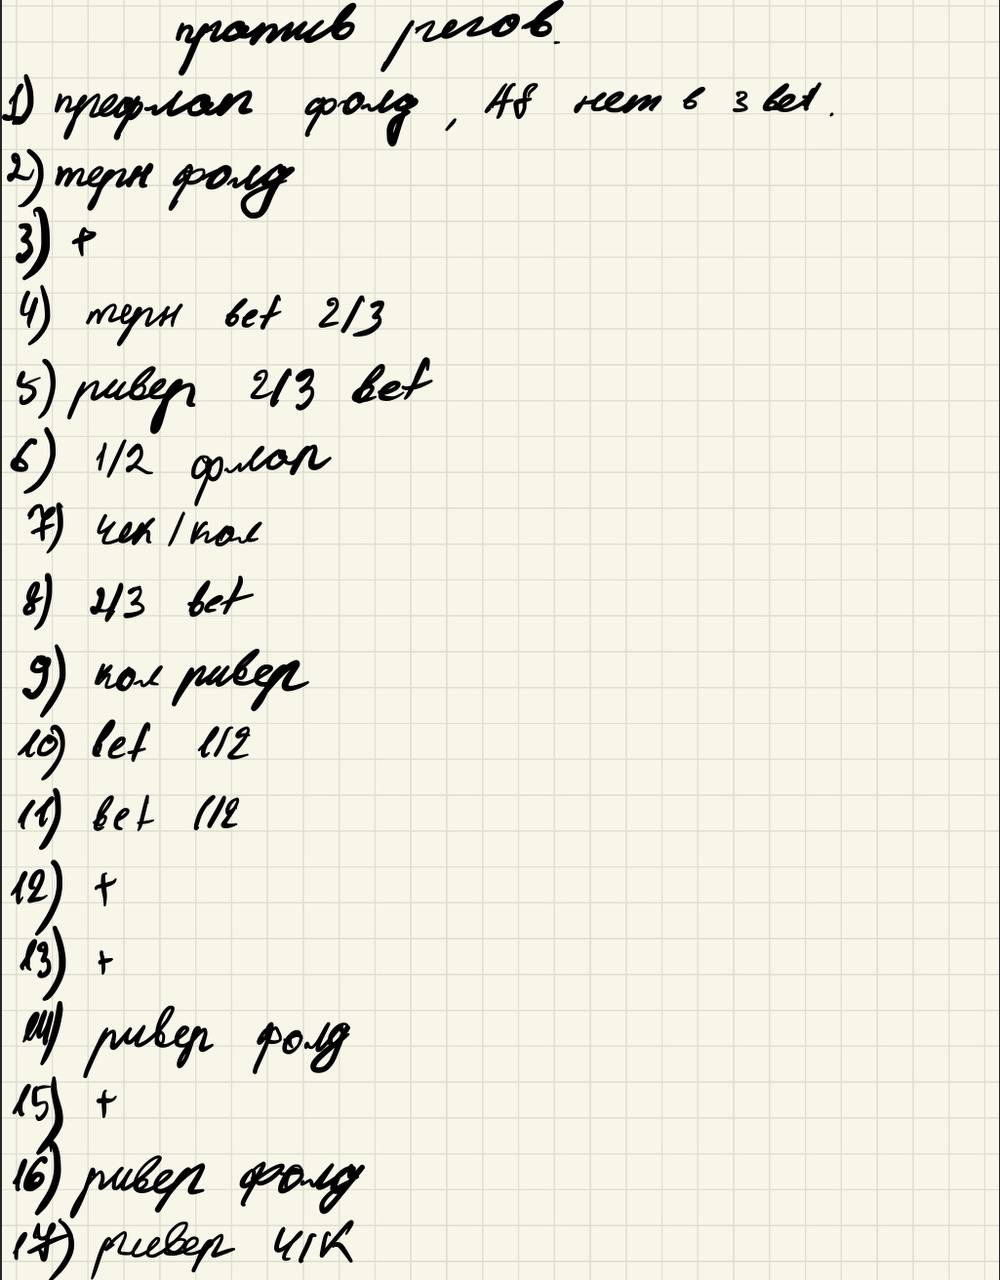 против регов.
1) префлоп фолд, A8 нет в 3 bet.
2) терн фолд
3) +
4) терн bet 2/3
5) ривер 2/3 bet
6) 1/2 флоп
7) чек / кол
8) 2/3 bet
9) кол ривер
10) bet 1/2
11) bet 1/2
12) +
13) +
14) ривер фолд
15) +
16) ривер фолд
17) ривер ч/к